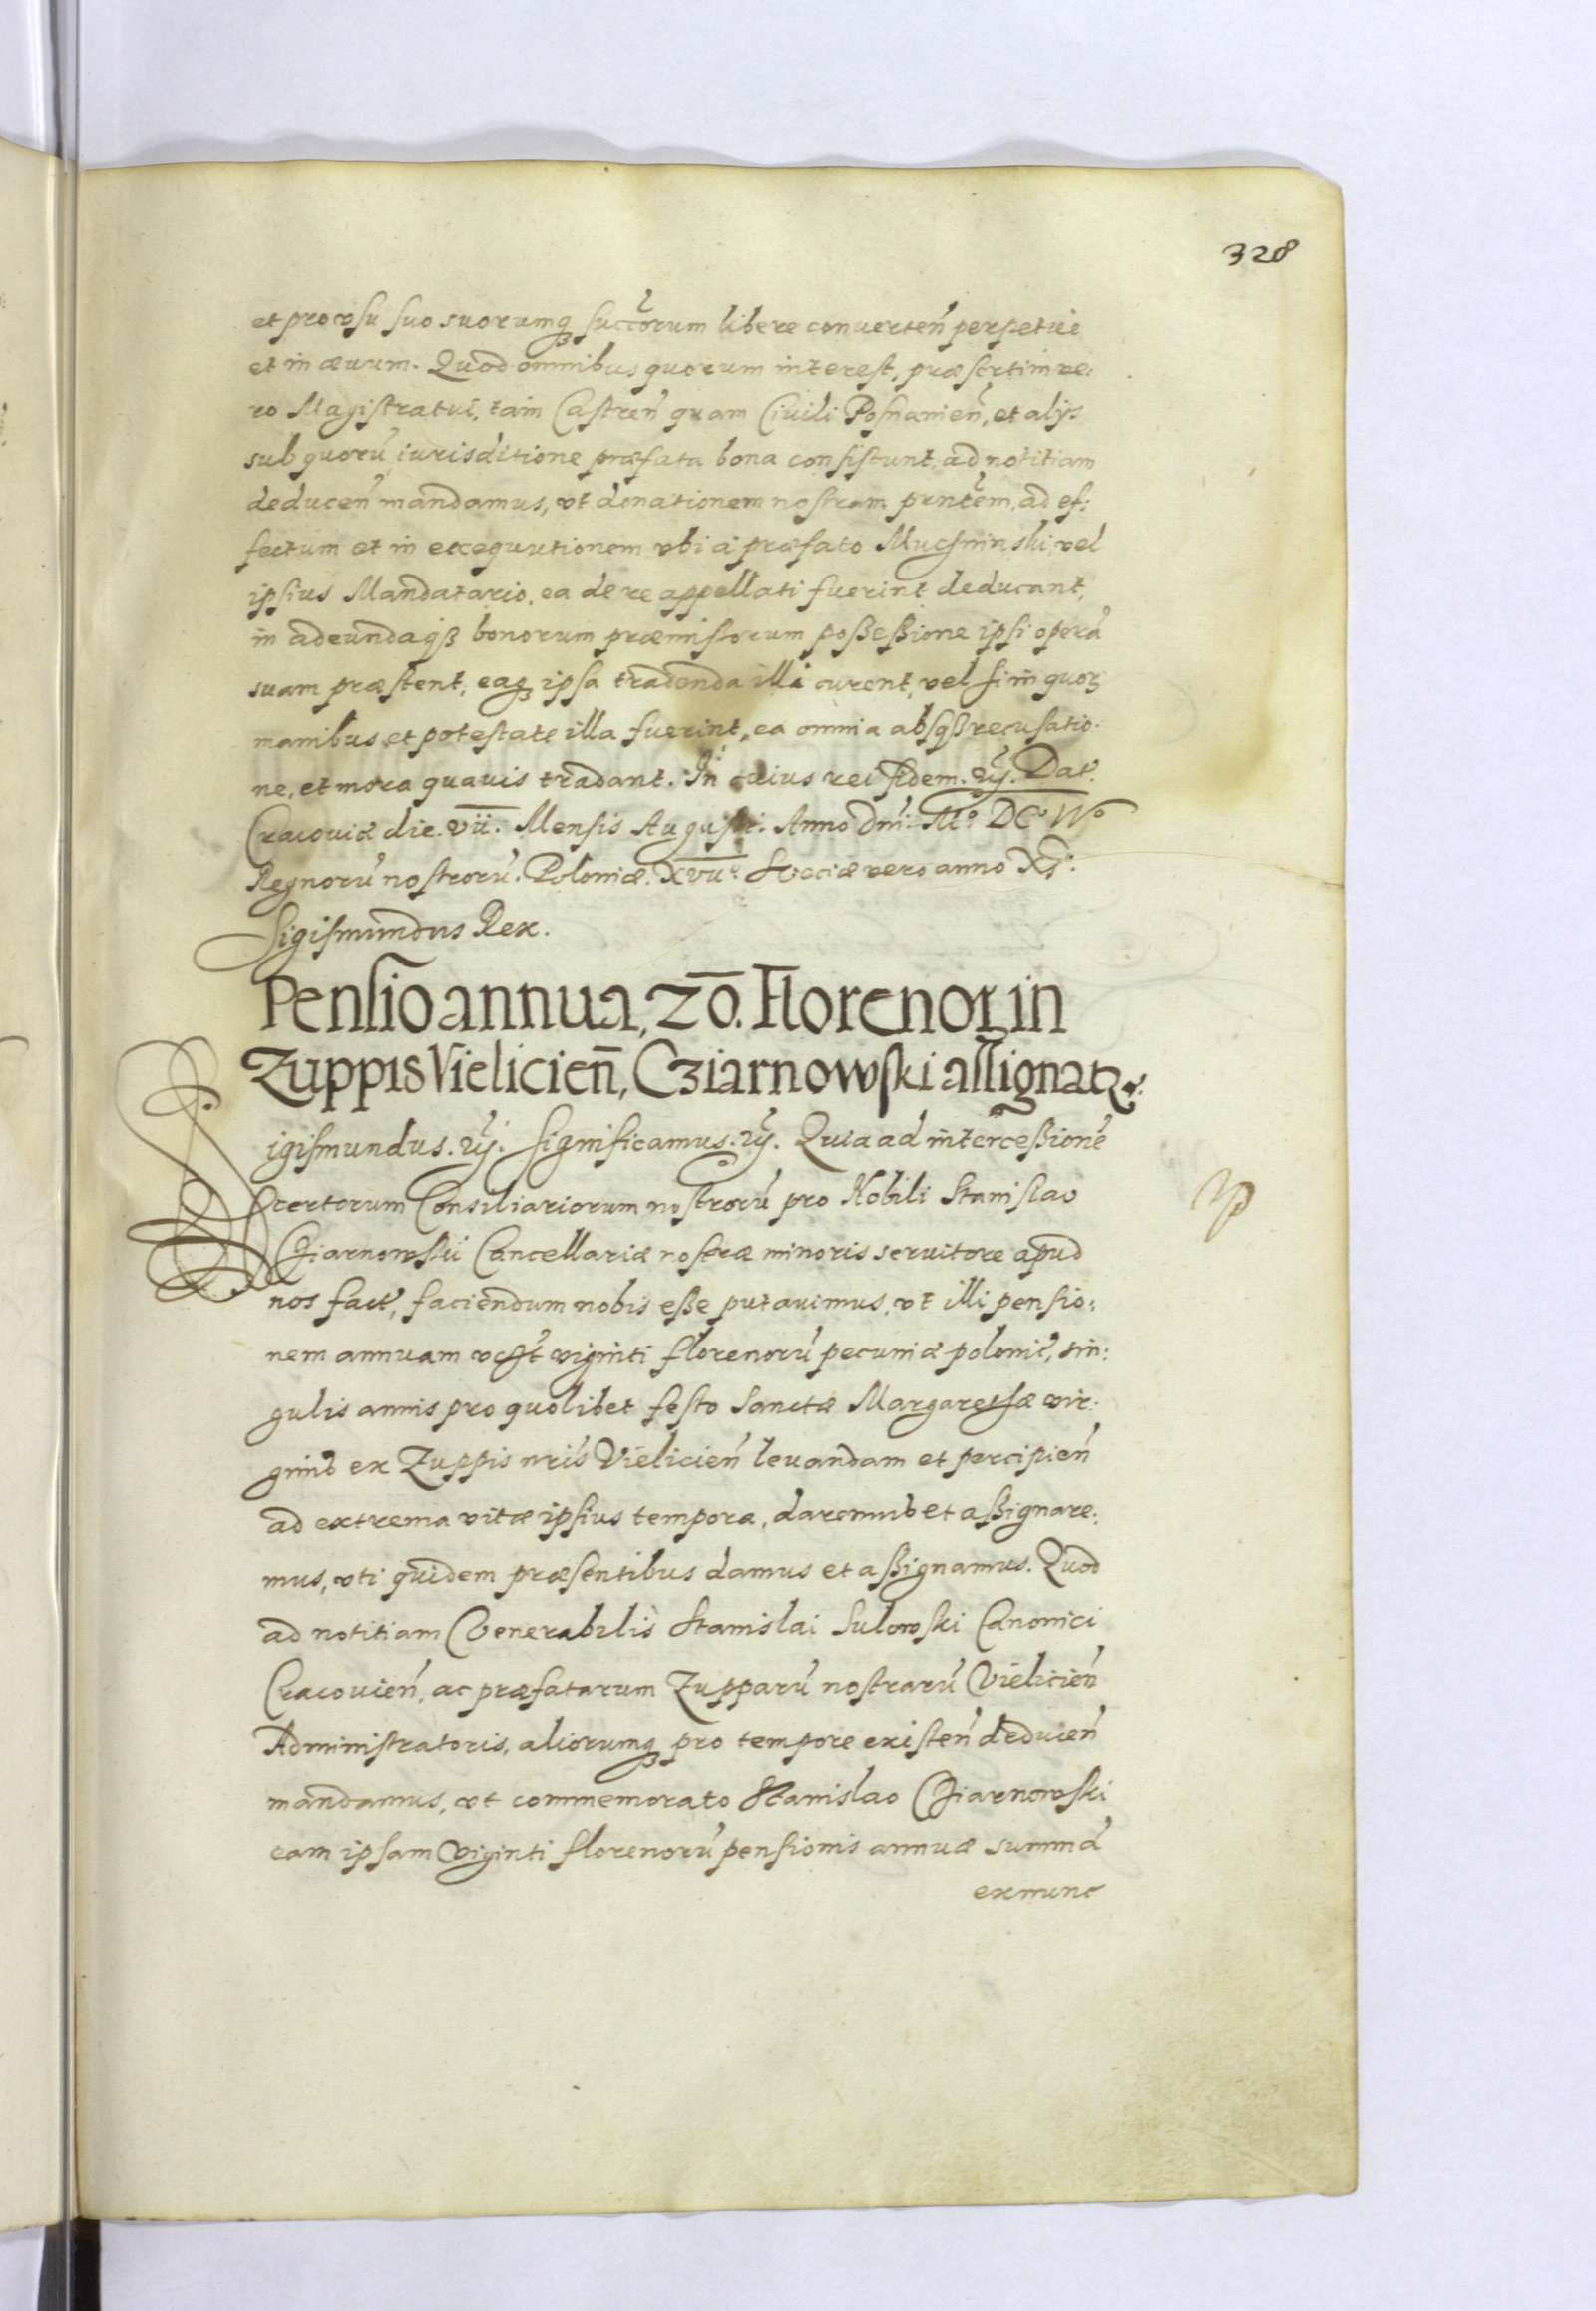 328
et pro vsu suo suorumq succorum libere conuerteñ perpetue
et in æuum. Quod omnibus quorum interest, præsertim ve:
ro Magistratui, tam Castreñ quam Ciuili Posnanieñ, et alys
sub quorũ iurisditione præfata bona consistunt, ad notitiam
deduceñ mandamus, vt donationem nostram prntem, ad ef:
fectum et in exequutionem vbi a præfato vel
ipsius Mandatario, ea de re appellati fuerint deducant,
in adeundaqß bonorum præmissorum poßeßione ipsi operã
suam præstent, eaq ipsa tradenda illi curent, vel si in quoꝝ
manibus et potestate illa fuerint, ea omnia absqß recusatio-
ne, et mora quauis tradant. In cuius rei fidem. ry. Dat.
Cracouiæ die. vii. Mensis Augusti. Anno Dni: Mº DCº IVº
Regnorũ nostrorũ. Poloniæ. XVIIº. Sueciæ vero anno XI:
Sigismundus Rex.
Pensio annua, 20. Florenoꝝ in
Zuppis Vielicieñ, Cziarnowski assignatꝛ.
igismundus. ry. Significamus. ry. Quia ad interceßionẽ
certorum Consiliariorum nostrorũ pro Nobili Stanislao
Cziarnowskii Cancellariæ nostræ minoris seruitore apud
nos fact, faciendum nobis eße putauimus, vt illi pensio:
nem annuam vcꝫt viginti florenorũ pecuniæ polonic, sin:
gulis annis pro quolibet festo Sanctæ Margarethæ vir:
ginis ex Zuppis nris Vielicieñ leuandam et percipieñ
ad extrema vitæ ipsius tempora, daremus et aßignare:
mus, vti quidem præsentibus damus et aßignamus. Quod
ad notitiam Venerabilis Stanislai Sulowski Canonici
Cracouieñ, ac præfatarum Zupparũ nostrarũ Vielicieñ
Administratoris, aliorumq pro tempore existeñ deduceñ
mandamus, vt commemorato Stanislao Cziarnowski
eam ipsam Viginti florenorũ pensionis annuæ summã
ex nunc